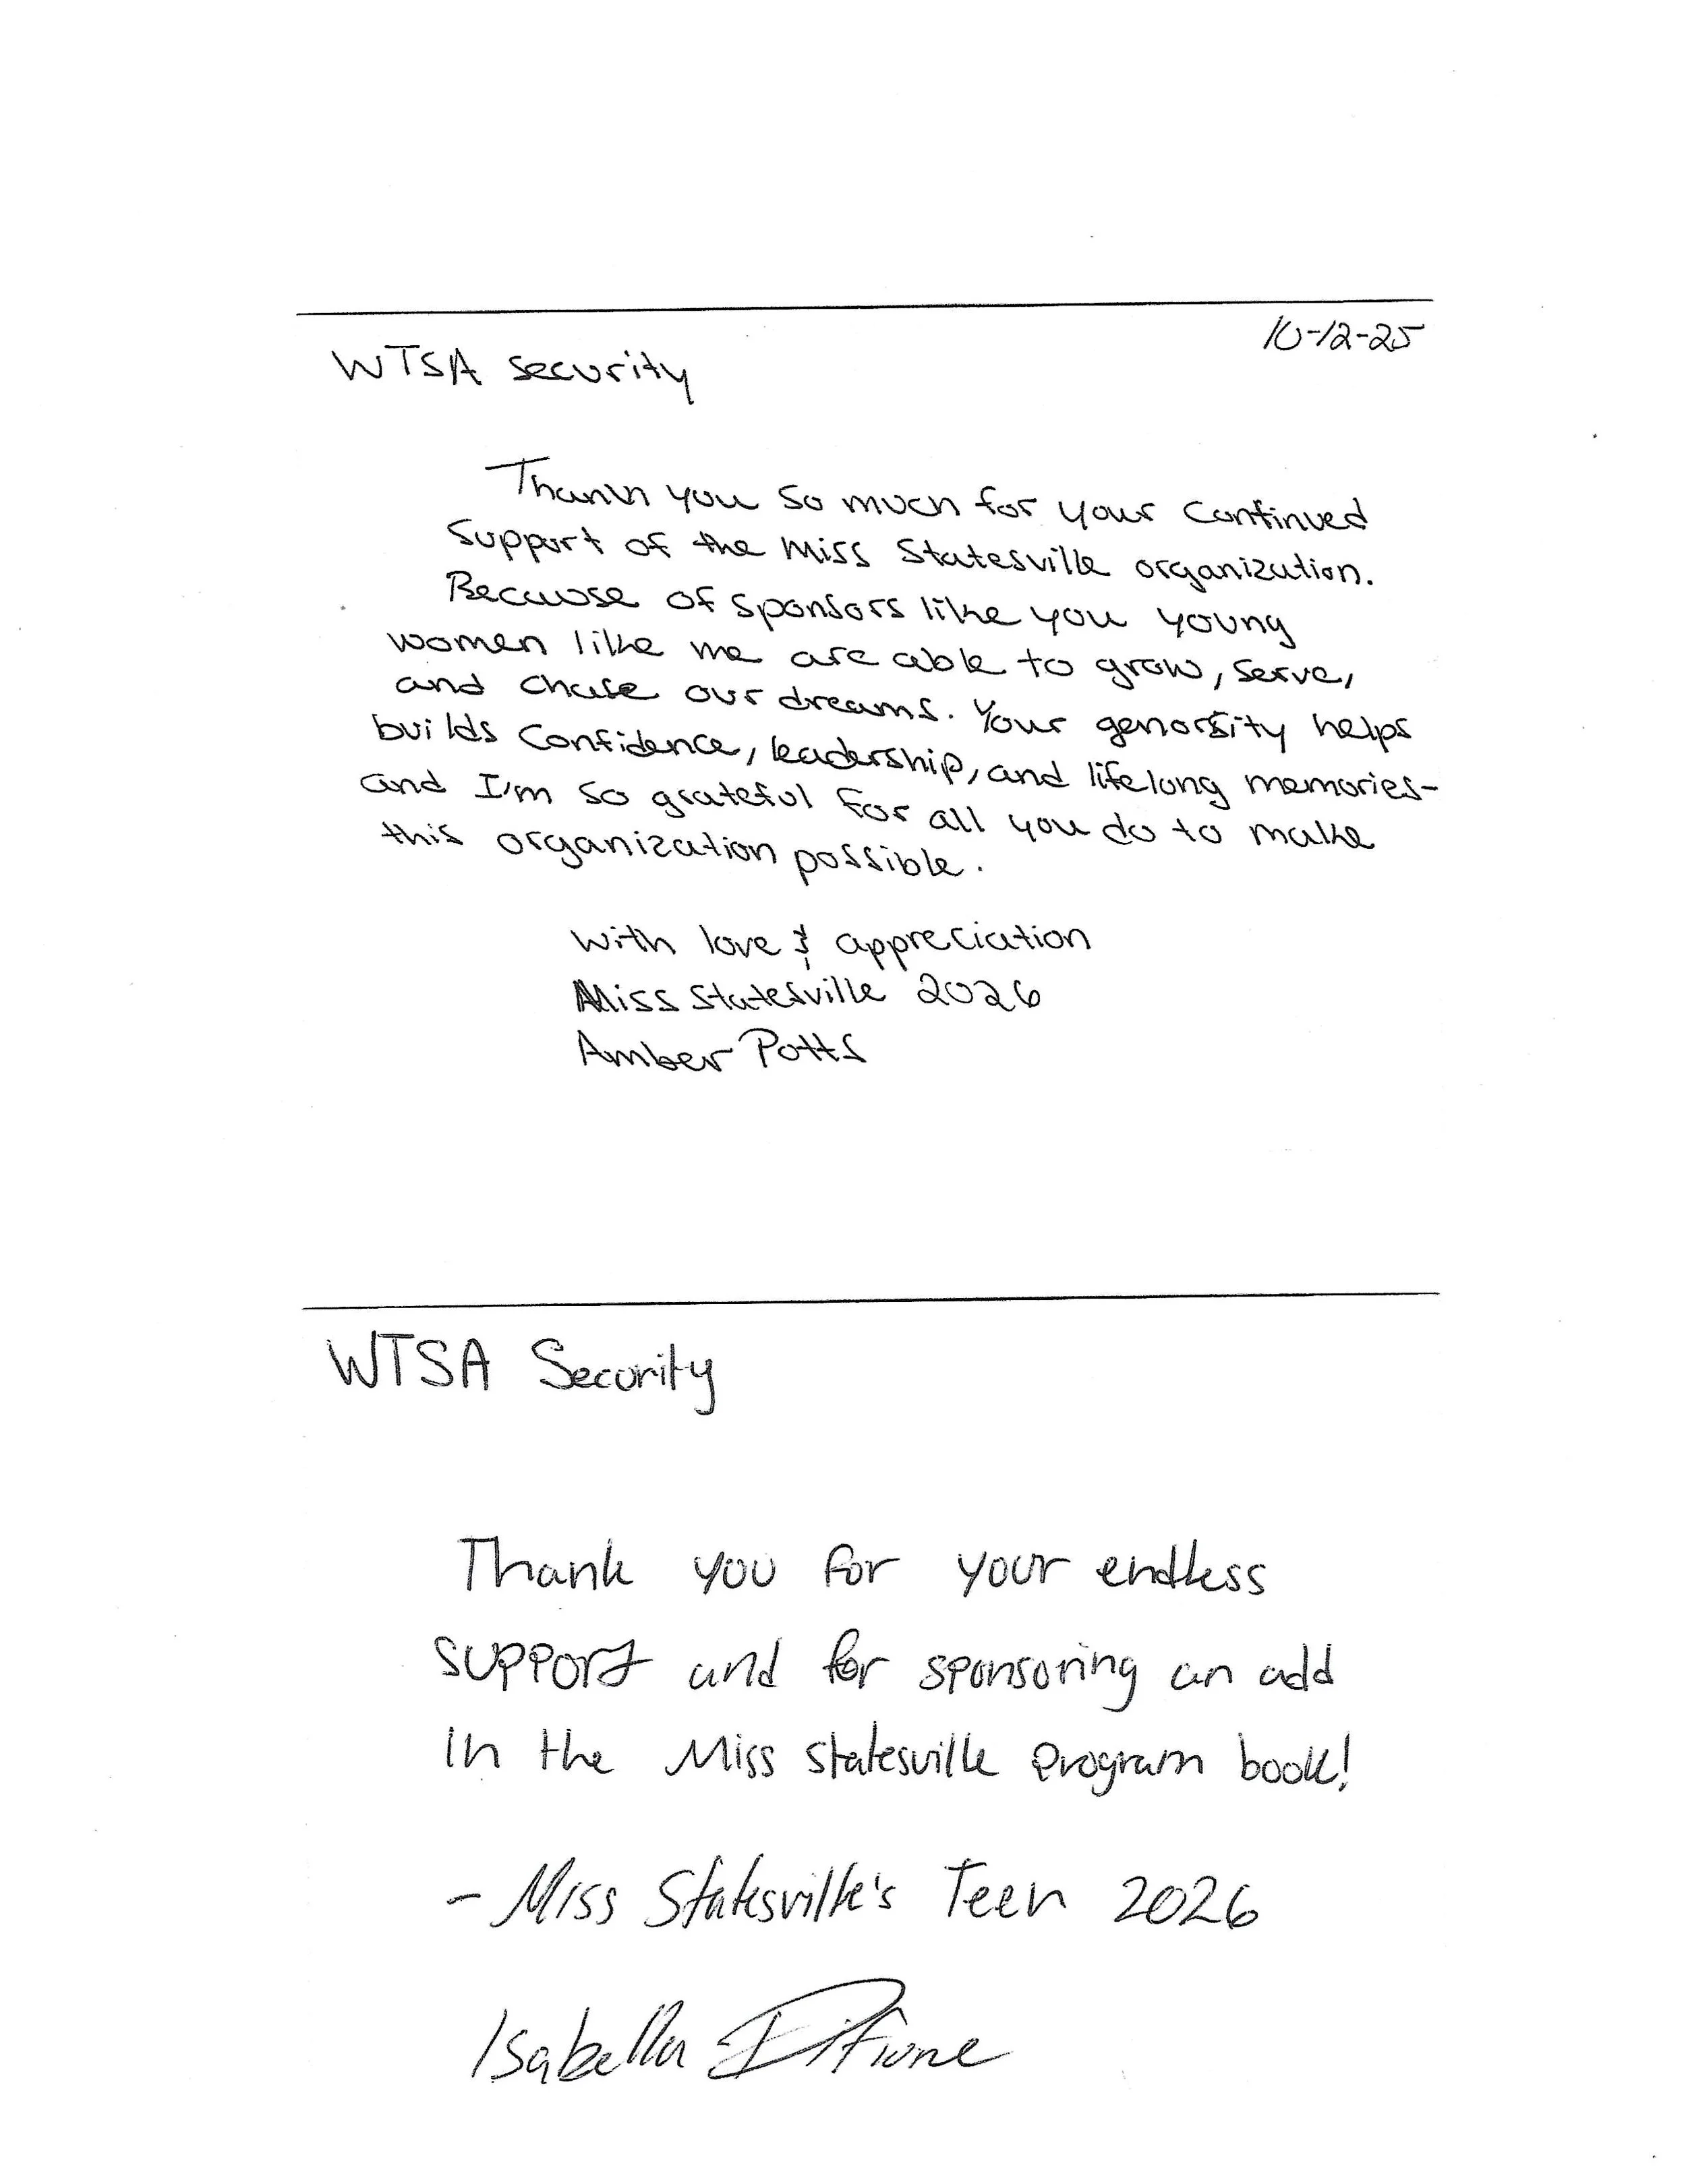 10-12-25
WTSA security
Thank you so much for your continued
support of the Miss Statesville organization.
Because of sponsors like you young
women like me are able to grow, serve,
and chase our dreams. Your genorsity helps
builds confidence, leadership, and lifelong memories-
and I'm so grateful for all you do to make
this organization possible.
with love & appreciation
Miss Statesville 2026
Amber Potts
WTSA Security
Thank you for your endless
support and for sponsoring an add
in the Miss Statesville Program book!
- Miss Statesville's Teen 2026
Isabella DiFiore